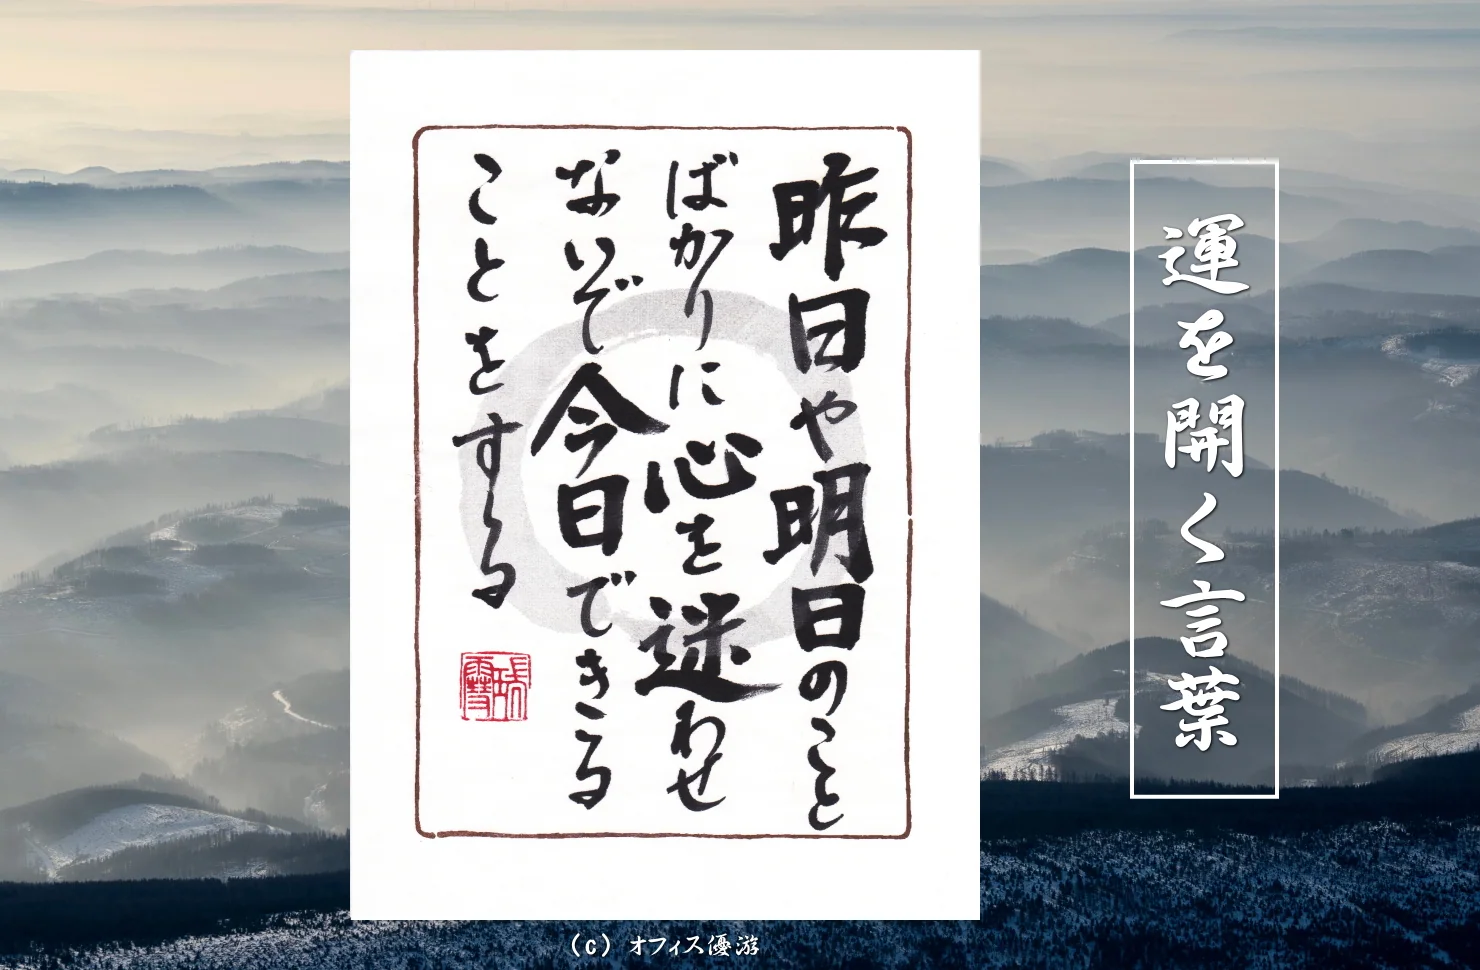 運を開く言葉
昨日や明日のこと
ばかりに心を迷わせ
ないで今日できる
ことをする
(c) オフィス優游